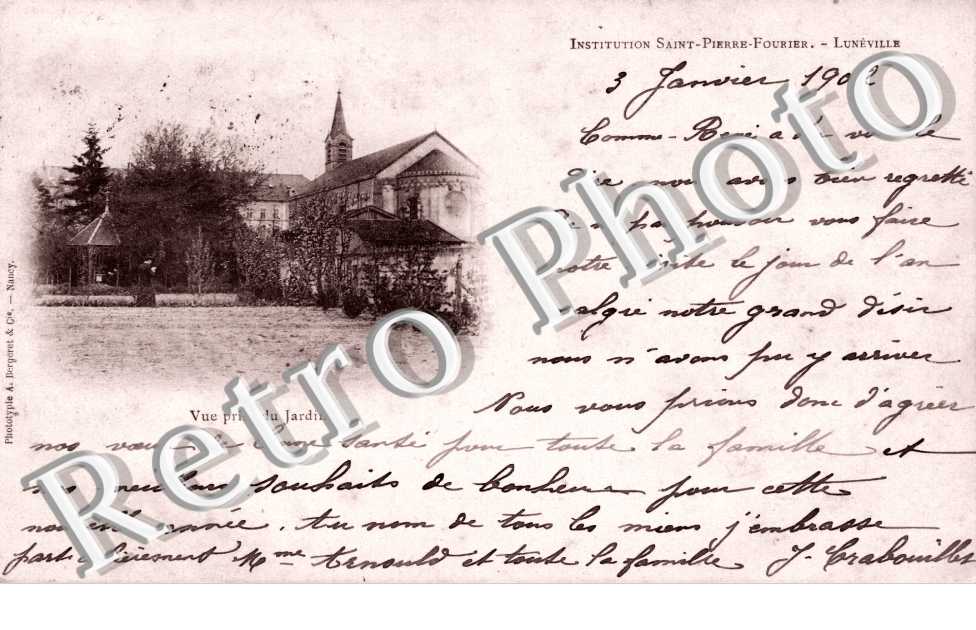 INSTITUTION SAINT-PIERRE-FOURIER. - LUNÉVILLE
3 Janvier 1902
Comme René a dû vous le
dire nous avons bien regretté
de n pas pouvoir vous faire
notre visite le jour de l'an
malgré notre grand désir
nous n'avons pu y arriver
Nous vous prions donc d'agréer
nos vœux de bonne santé pour toute la famille et
nos meilleurs souhaits de bonheur pour cette
nouvelle année. Au nom de tous les miens j'embrasse
particulièrement Mme Arnould et toute la famille J. Crabouillet
Vue prise du Jardin
Phototypie A. Bergeret & Cie. — Nancy.
Retro Photo
Retro Photo